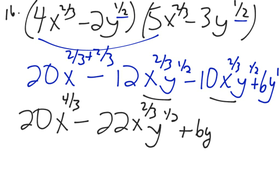 16. (4x^{2/3} - 2y^{1/2})(5x^{2/3} - 3y^{1/2})
20x^{2/3+2/3} - 12x^{2/3}y^{1/2} - 10x^{2/3}y^{1/2} + 6y^1
20x^{4/3} - 22x^{2/3}y^{1/2} + 6y